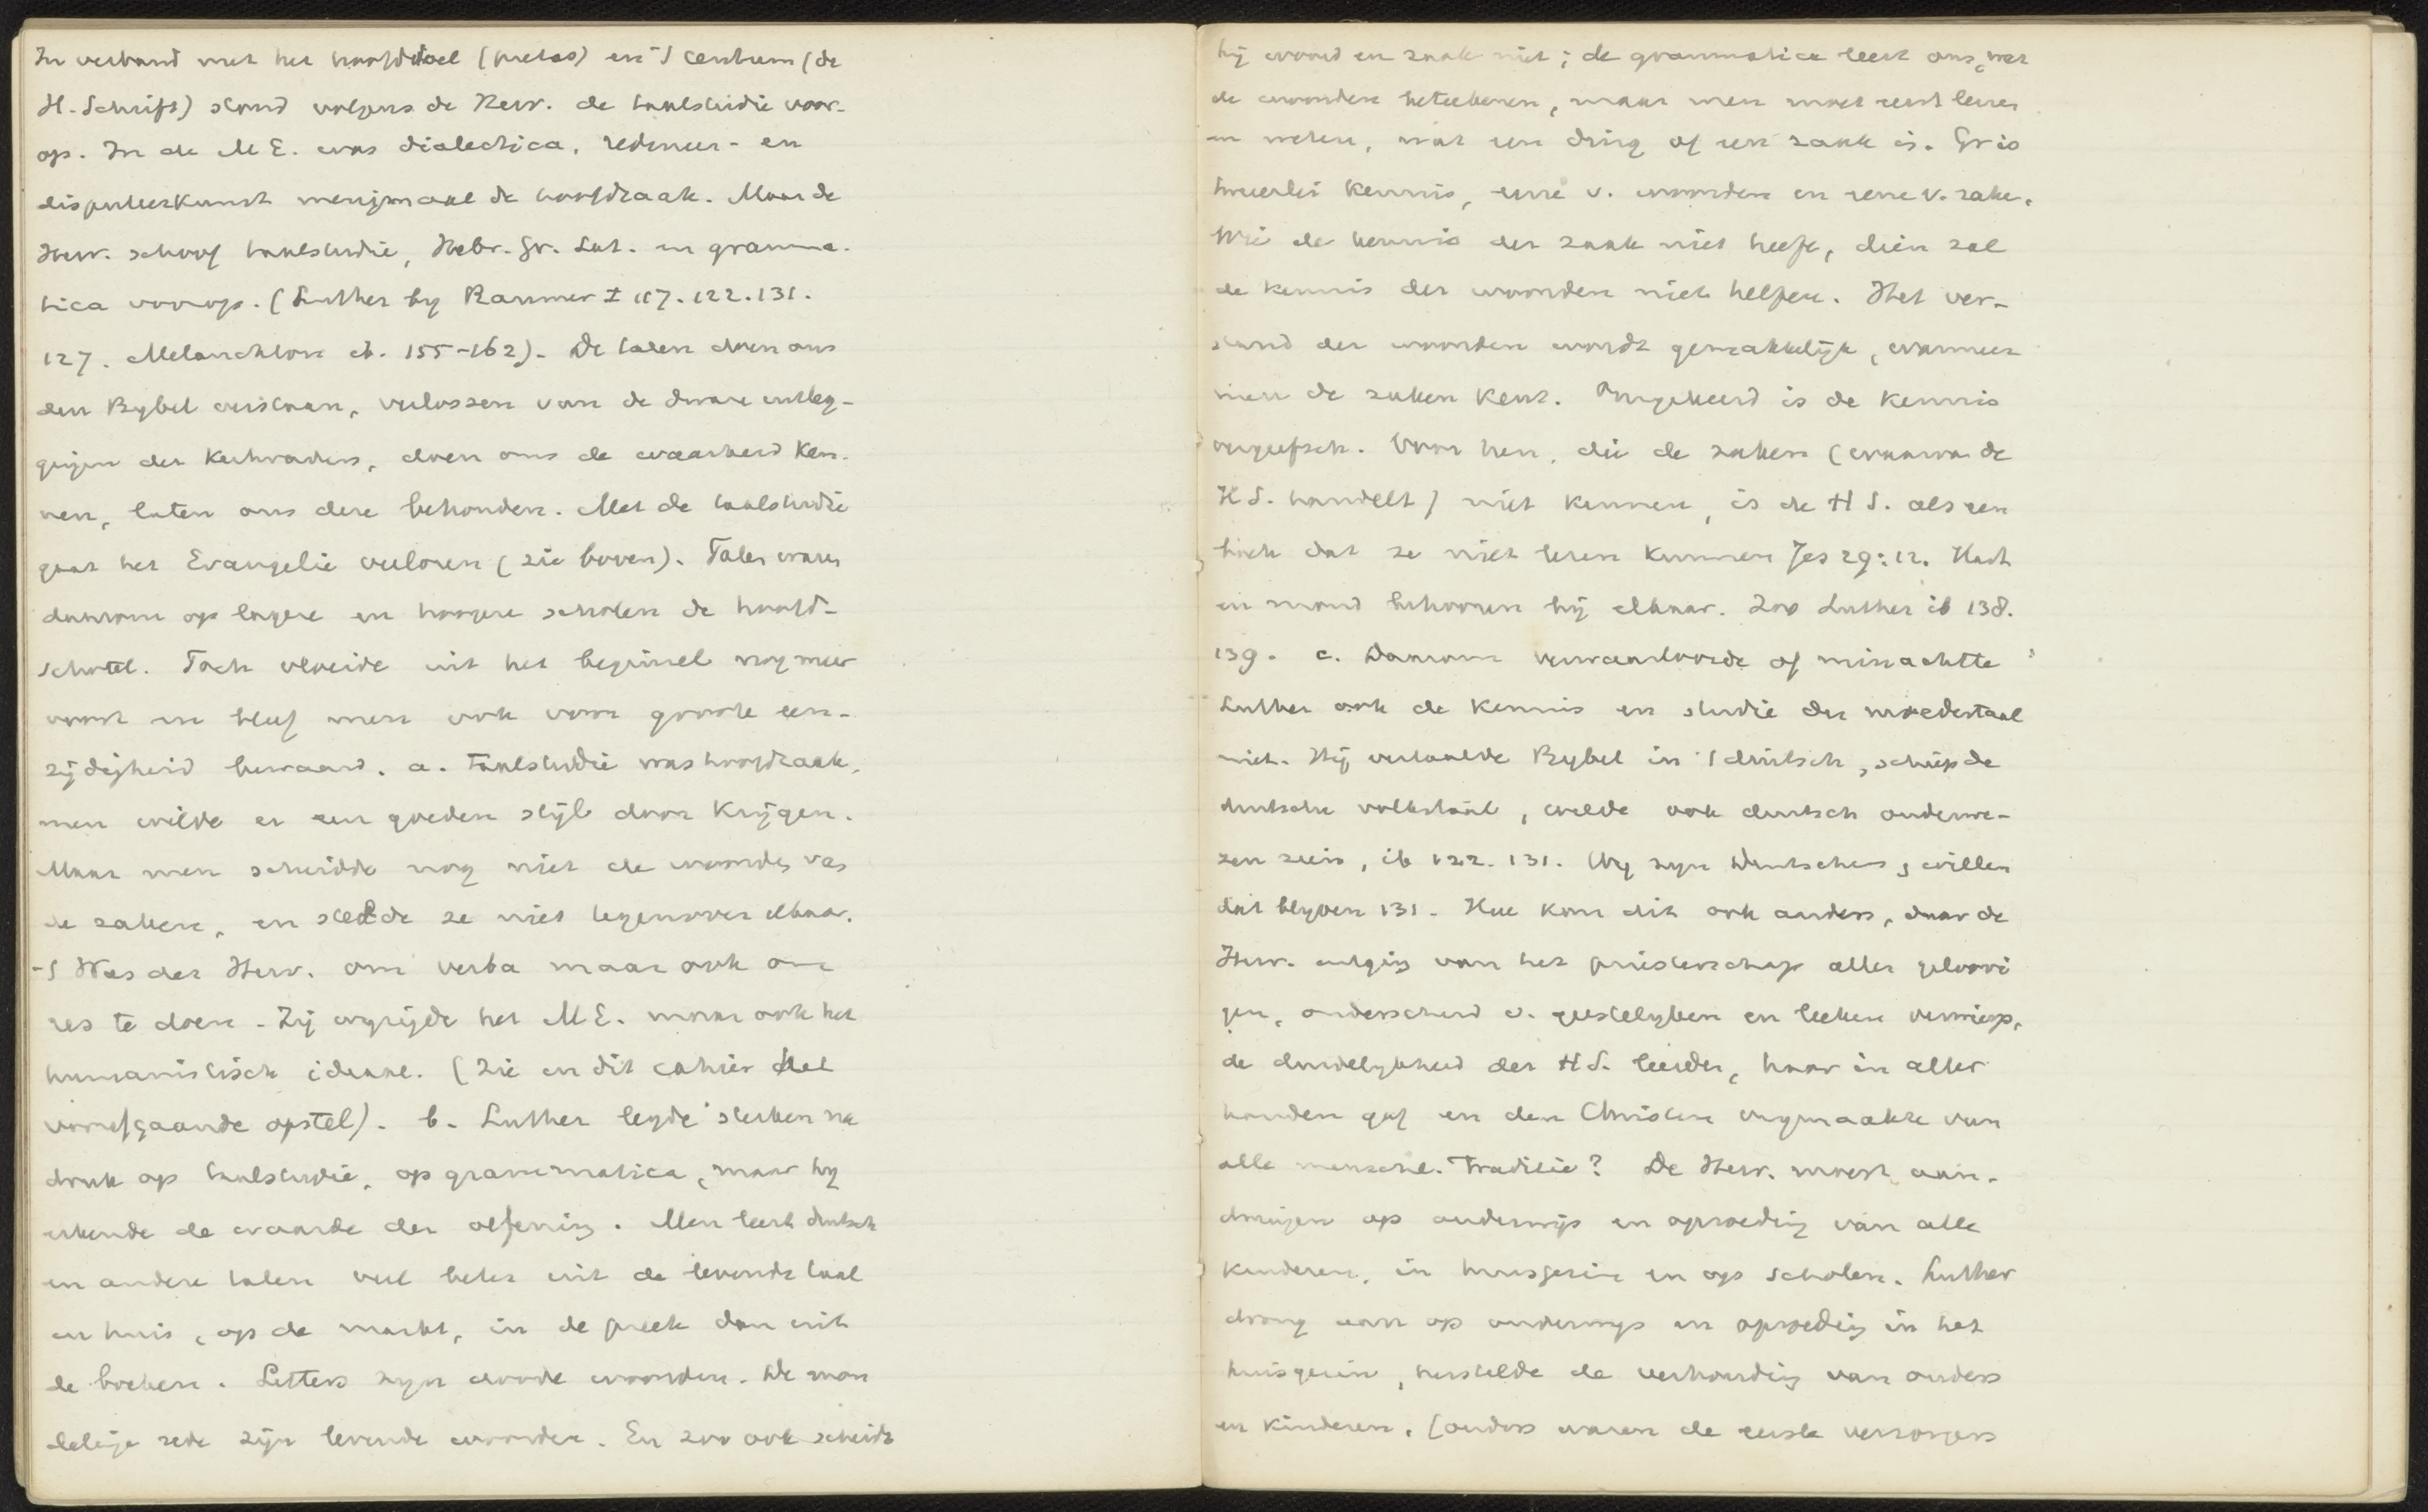 In verband met het hoofddoel (pietas) en 't centrum (de
H. Schrift) stond volgens de Herv. de taalstudie voor-
op. In de M E. was dialectica, redeneer- en
disputeerkunst menigmaal de hoofdzaak. Maar de
Herv. schoof taalstudie, Hebr. Gr. Lat. en gramma-
tica voorop. (Luther by Raumer I 117. 122. 131.
127. Melanchton ib. 155-162). De talen doen ons
den Bybel verstaan, verlossen van de dwaze uitleg-
gingen der Kerkvaders, doen ons de waarheid ken-
nen, laten ons deze behouden. Met de taalstudie
gaat het Evangelie verloren (zie boven). Talen waren
daarom op lagere en hoogere scholen de hoofd-
schotel. Toch vloeide uit het beginsel nog meer
voort en bleef men ook voor groote een-
zijdigheid bewaard. a. Taalstudie was hoofdzaak,
men wilde er een goeden stijl door krijgen.
Maar men scheidde nog niet de woorden van
de zaken, en stelde ze niet tegenover elkaar.
't Was der Herv. om verba maar ook om
res te doen. Zij wijzigde het M E. maar ook het
humanistisch ideaal. (Zie in dit cahier het
voorafgaande opstel). b. Luther legde sterken na
druk op taalstudie, op grammatica, maar hy
erkende de waarde der oefening. Men leert duitsch
en andere talen veel beter uit de levende taal
in huis, op de markt, in de preek dan uit
de boeken. Letters zyn doode woorden. De mon
delinge rede zijn levende woorden. En zoo ook scheidt
hij woord en zaak niet; de grammatica leert ons, wat
de woorden beteekenen, maar men moet eerst leren
en weten, wat een ding of een zaak is. Er is
tweeërlei kennis, eene v. woorden en eene v. zaken.
Wie de kennis der zaak niet heeft, dien zal
de kennis der woorden niet helpen. Het ver-
stand der woorden wordt gemakkelijk, wanneer
men de zaken kent. Omgekeerd is de kennis
vergeefsch. Voor hen, die de zaken (waarvan de
H S. handelt) niet kennen, is de H S. als een
boek dat ze niet lezen kunnen Jes 29:12. Hart
en mond behooren bij elkaar. Zoo Luther ib 138.
139. c. Daarom verwaarloosde of minachtte
Luther ook de kennis en studie der moedertaal
niet. Hij vertaalde Bybel in 't duitsch, schiep de
duitsche volkstaal, wilde ook duitsch onderwe-
zen zien, ib 122. 131. Wy zyn Duitschers, willen
dat blyven 131. Hoe kon dit ook anders, daar de
Herv. uitging van het priesterschap aller geloovi
gen, onderscheid v. geestelyken en leeken verwierp,
de duidelykheid der H S. leerde, haar in aller
handen gaf en den Christen vrymaakte van
alle menschel. traditie? De Herv. moest aan-
dringen op onderwijs en opvoeding van alle
kinderen, in huisgezin en op scholen. Luther
drong aan op onderwys en opvoeding in het
huisgezin, herstelde de verhouding van ouders
en kinderen. (ouders waren de eerste verzorgers